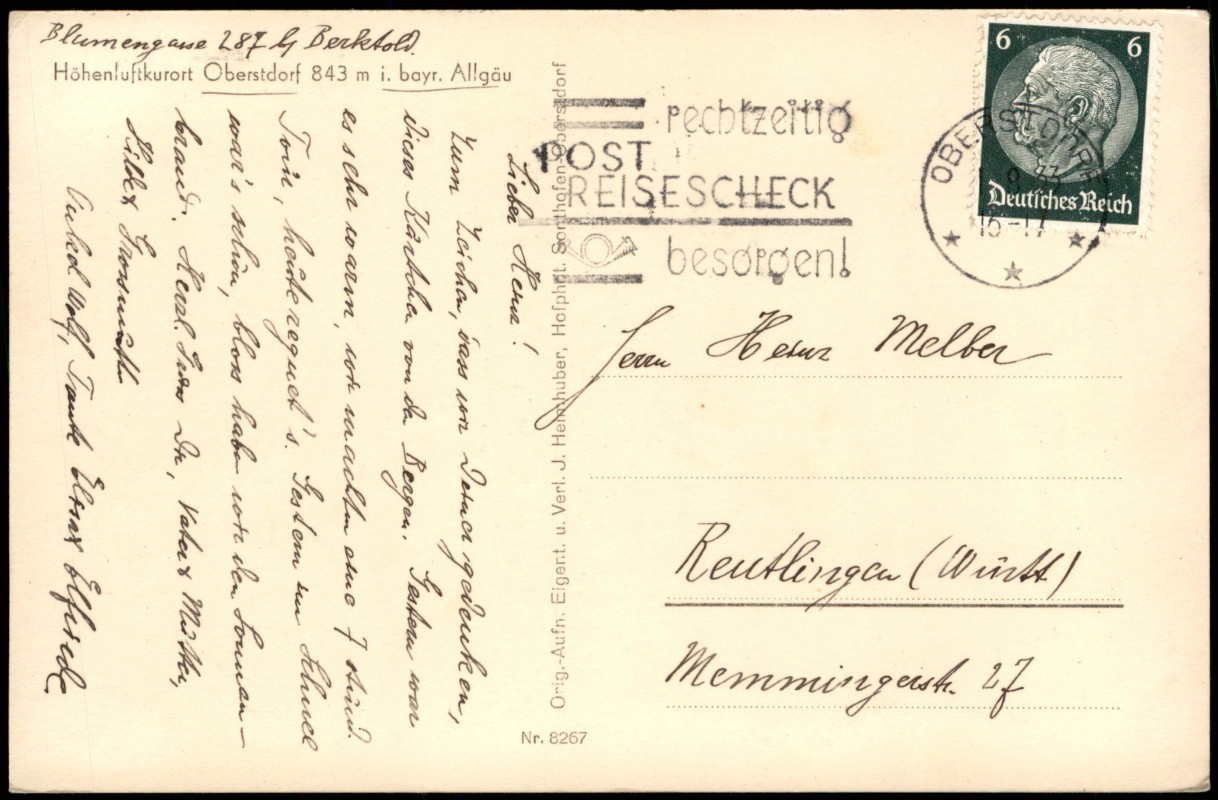 Blumengasse 287 b/ Berktold.
Höhenluftkurort Oberstdorf 843 m i. bayr. Allgäu
Lieber Heinz!
Zum Zeichen, dass wir Deiner gedenken,
dieses Kärtchen von den Bergen. Gestern war
es sehr warm, wir machten eine 7 stünd.
Tour, heute regnet's. Gestern im Schnee
war's schön, bloss haben wir den Sonnen-
brand. Herzl. Dir, Vater & Mutter,
Liebe Grossmutter
Onkel Wolf, Tante Elise & Elfriede
Orig.-Aufn. Eigent. u. Verl. J. Heimhuber, Hofphot. Sonthofen-Oberstdorf
Nr. 8267
rechtzeitig
POST
REISESCHECK
besorgen!
OBERSTDORF
16-17
6 6
Deutsches Reich
Herrn Heinz Melber
Reutlingen (Württ)
Memmingerstr. 27